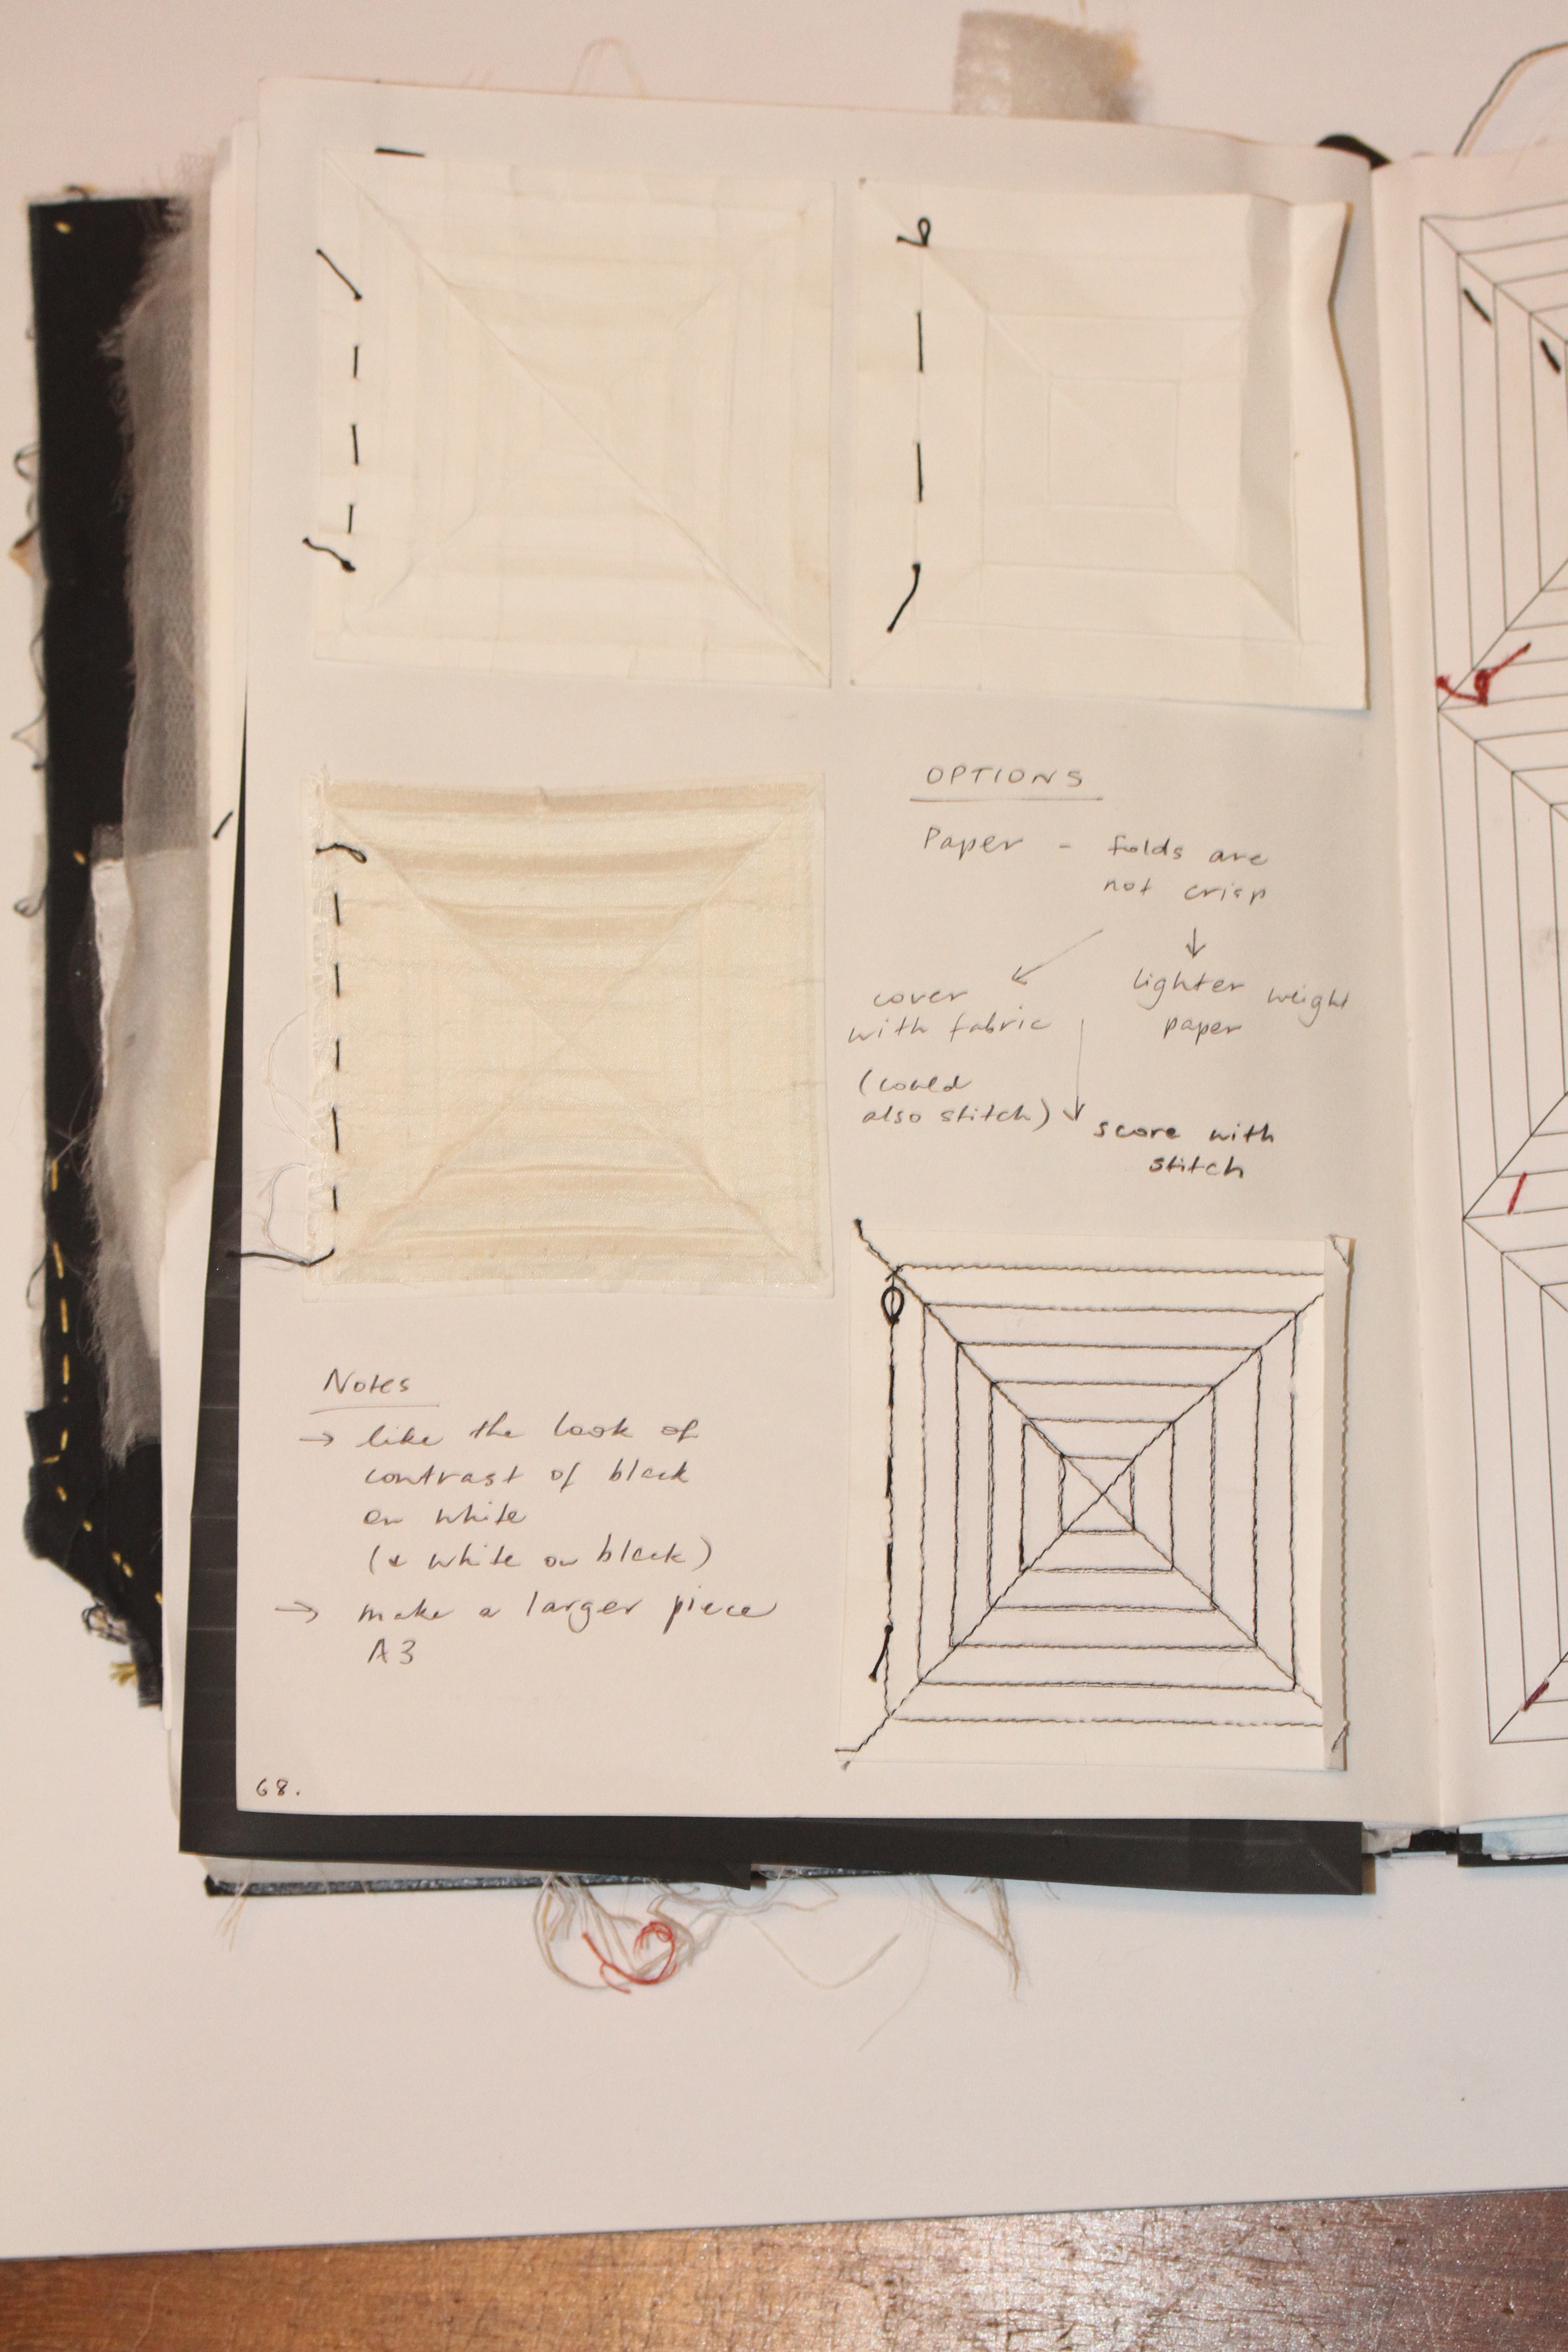 OPTIONS
Paper - folds are
not crisp
cover
with fabric
(could
also stitch)
lighter weight
paper
score with
stitch
Notes
→ like the look of
contrast of black
on white
(& white on black)
→ make a larger piece
A3
68.